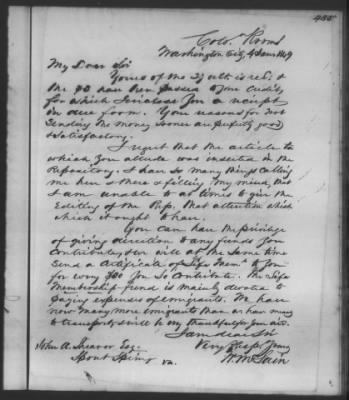 455
Colo. Rooms
Washington City, 4 Jan 1849
My Dear Sir
Yours of the is recd &
the $30 has been passed to your credit
for which I enclose you a receipt
in due form. Your reasons for not
sending the money sooner are perfectly good
& satisfactory.
I regret that the article to
which you allude was inserted in the
Repository. I have so many things calling
me here & there & filling my mind, that
I am unable at times to give the
Editing of the Rep. that attention which
which it ought to have.
You can have the privilege
of giving direction to any funds you
contribute, & we will at the same time
send a certificate of Life Mem. to you
for every $30 you so contribute. The Life
Membership fund is mainly devoted to
paying expenses of emigrants. We have
now many more emigrants than we have money
to transport, & will be very thankful for your aid.
I am dear Sir
Very Resp. Yours
W. McLain
John A. Esq.
Spout Spring
Va.